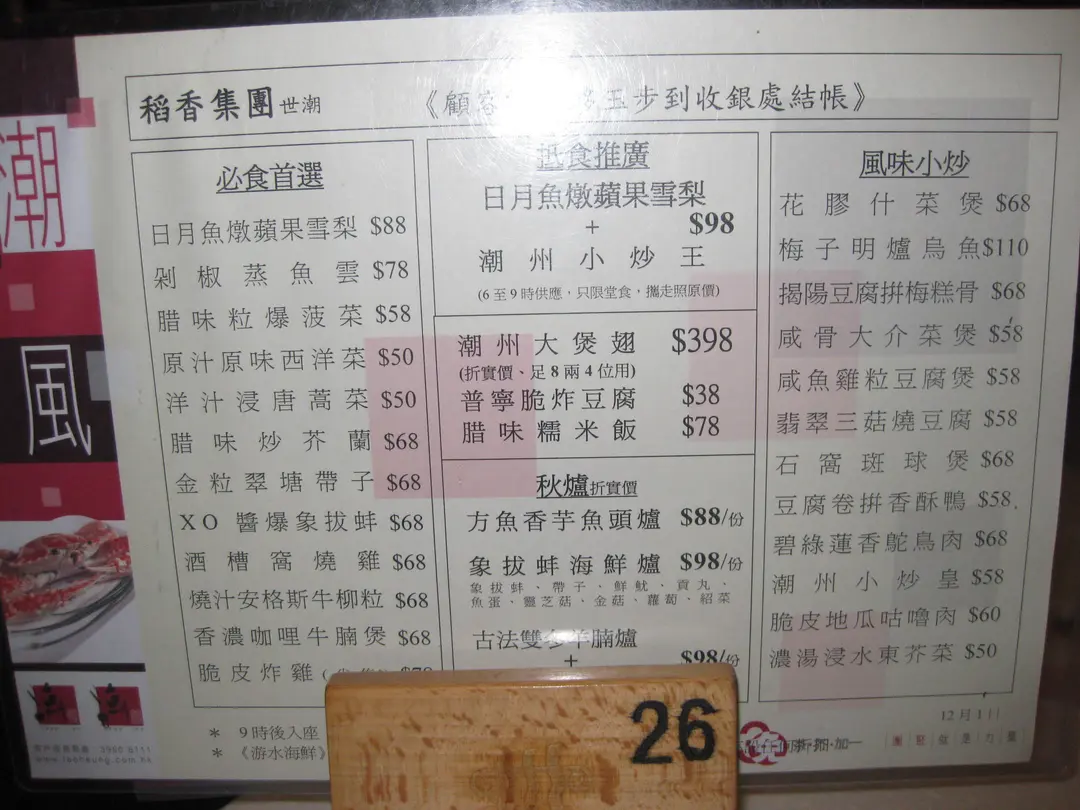 稻香集團 世潮
玉步到收銀處結帳》
潮
風
必食首選
日月魚燉蘋果雪梨 $88
剁椒蒸魚雲 $78
腊味粒爆菠菜 $58
原汁原味西洋菜 $50
洋汁浸唐蒿菜 $50
腊味炒芥蘭 $68
金粒翠塘帶子 $68
XO 醬爆象拔蚌 $68
酒槽窩燒雞 $68
燒汁安格斯牛柳粒 $68
香濃咖哩牛腩煲 $68
脆皮炸雞
抵食推廣
日月魚燉蘋果雪梨
+ $98
潮州小炒王
(6 至 9 時供應，只限堂食，攜走照原價)
潮州大煲翅 $398
(折實價、足 8 兩 4 位用)
普寧脆炸豆腐 $38
腊味糯米飯 $78
秋爐折實價
方魚香芋魚頭爐 $88/份
象拔蚌海鮮爐 $98/份
象拔蚌、帶子、鮮魷、貢丸、
魚蛋、靈芝菇、金菇、蘿蔔、紹菜
古法雙冬羊腩爐
+ $98/份
風味小炒
花膠什菜煲 $68
梅子明爐烏魚 $110
揭陽豆腐拼梅糕骨 $68
咸骨大介菜煲 $58
咸魚雞粒豆腐煲 $58
翡翠三菇燒豆腐 $58
石窩斑球煲 $68
豆腐卷拼香酥鴨 $58
碧綠蓮香鴕鳥肉 $68
潮州小炒皇 $58
脆皮地瓜咕嚕肉 $60
濃湯浸水東芥菜 $50
* 9 時後入座
* 《游水海鮮》
12 月 1日
26